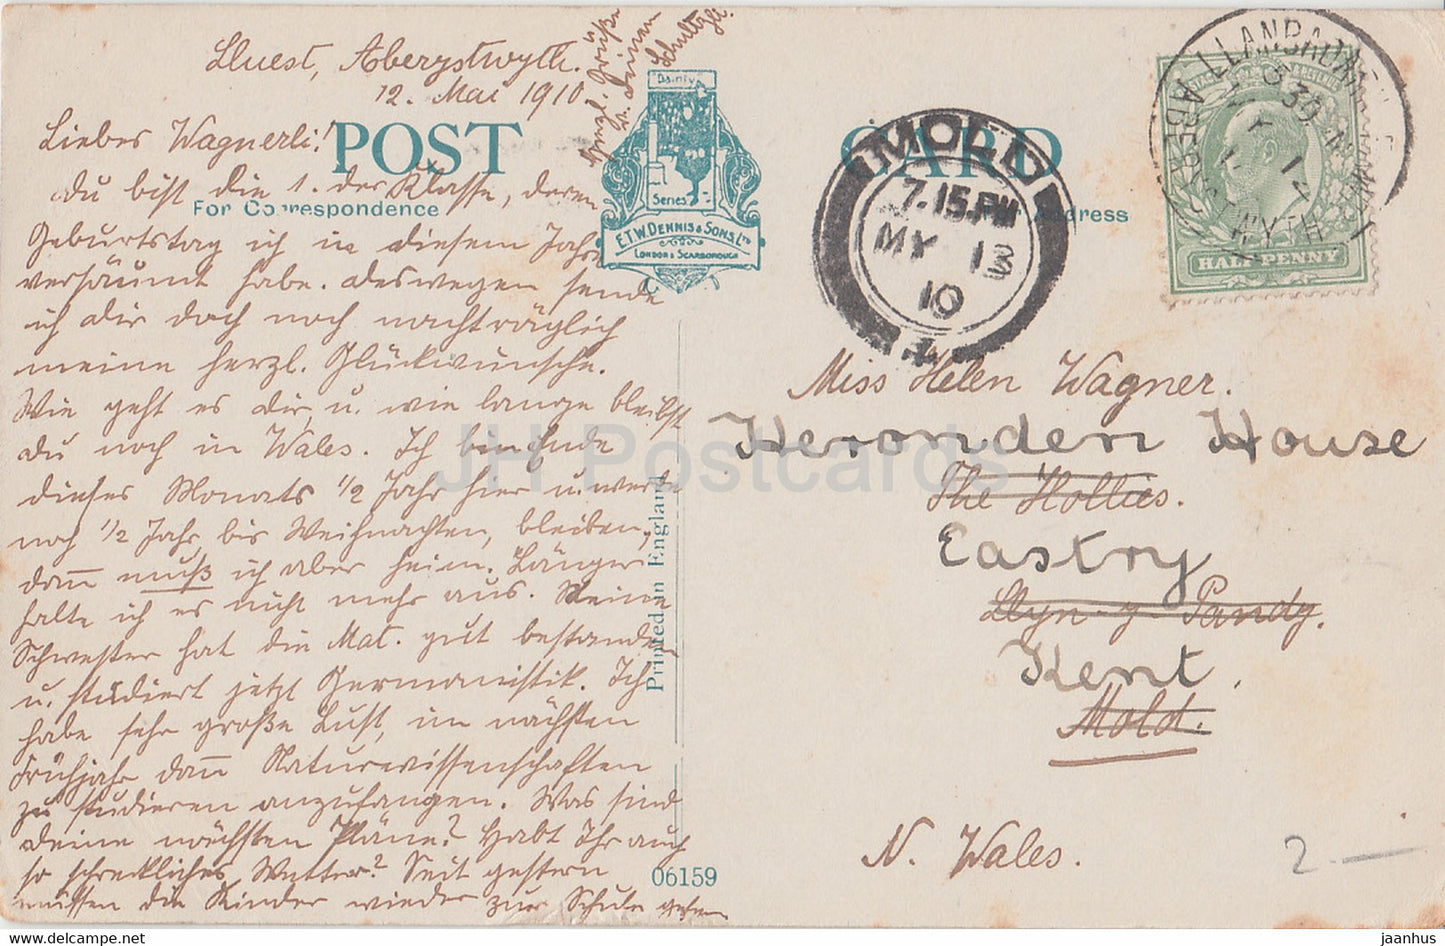 Lluest, Aberystwyth.
12. Mai 1910
Liebes Wagnerli!
du bist die 1. der Klasse, deren
Geburtstag ich in diesem Jahr
versäumt habe. deswegen sende
ich dir doch noch nachträglich
meine herzl. Glückwünsche.
Wie geht es dir u. wie lange bleibst
du noch in Wales. Ich bin Ende
dieses Monats 1/2 Jahr hier u. werde
noch 1/2 Jahr bis Weihnachten, bleiben,
dann muß ich aber heim. Länger
halte ich es nicht mehr aus. Meine
Schwester hat die Mat. gut bestanden
u. studiert jetzt Germanistik. Ich
habe sehr große Lust, im nächsten
Frühjahr dann Naturwissenschaften
zu studieren anzufangen. Was sind
deine nächsten Pläne? Habt Ihr auch
so schreckliches Wetter? Seit gestern
müssen die Kinder wieder zur Schule gehen
herzl. Grüße
v. Deinen
POST CARD
For Correspondence
Address
Dainty
Series
E.T.W. DENNIS & SONS, LTD
LONDON & SCARBOROUGH
Printed in England
06159
MOLD
7.15.PM
MY 13
10
LLANBADARN
ABERYSTWYTH
HALFPENNY
Miss Helen Wagner.
Heronden House
The Hollies.
Eastry
Llyn-y-Pandy.
Kent.
Mold.
N. Wales.
2 —
JH Postcards
delcampe.net
jaanhus